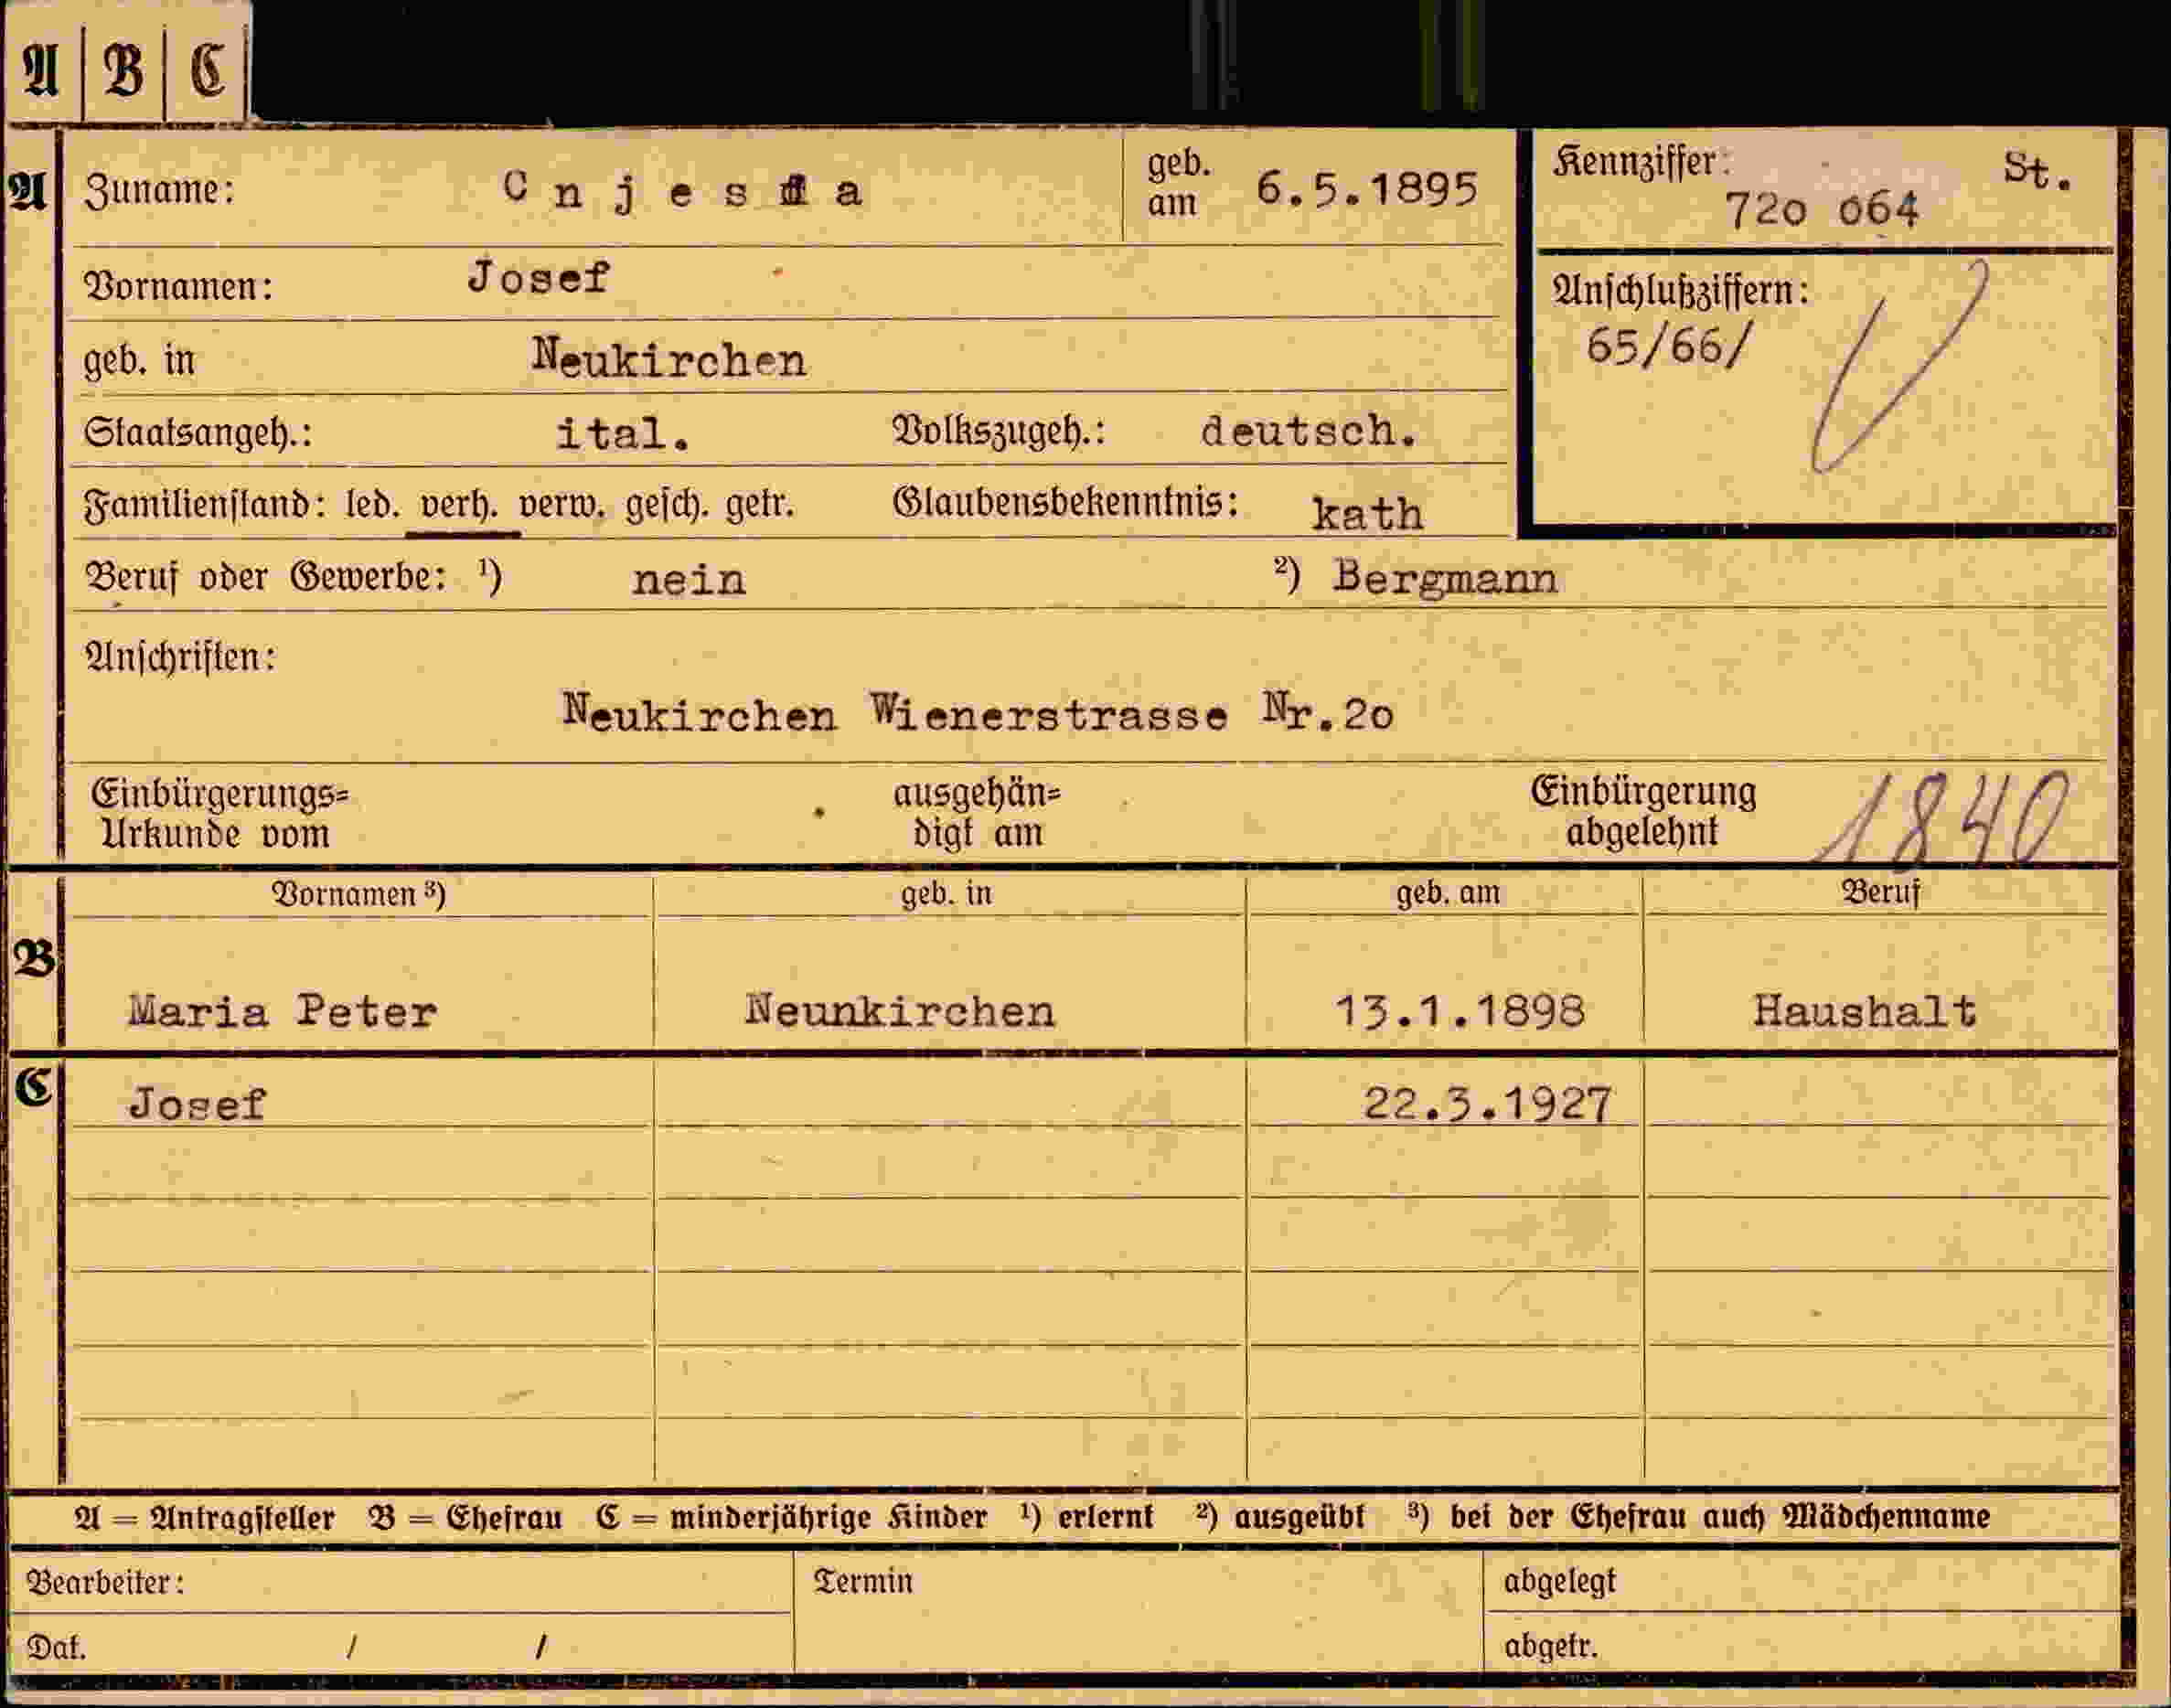 A B C
A Zuname: geb. am 6.5.1895 Kennziffer: St.
720 064
Vornamen: Josef Anschlußziffern:
65/66/
geb. in Neukirchen
Staatsangeh.: ital. Volkszugeh.: deutsch.
Familienstand: led. verh. verw. gesch. getr. Glaubensbekenntnis: kath
Beruf oder Gewerbe: ¹) nein ²) Bergmann
Anschriften:
Neukirchen Wienerstrasse Nr.20
Einbürgerungs= ausgehän= Einbürgerung 1840
Urkunde vom digt am abgelehnt
Vornamen ³) geb. in geb. am Beruf
B
Maria Peter Neunkirchen 13.1.1898 Haushalt
C Josef 22.3.1927
A = Antragsteller B = Ehefrau C = minderjährige Kinder ¹) erlernt ²) ausgeübt ³) bei der Ehefrau auch Mädchenname
Bearbeiter: Termin abgelegt
Dat. / / abgetr.